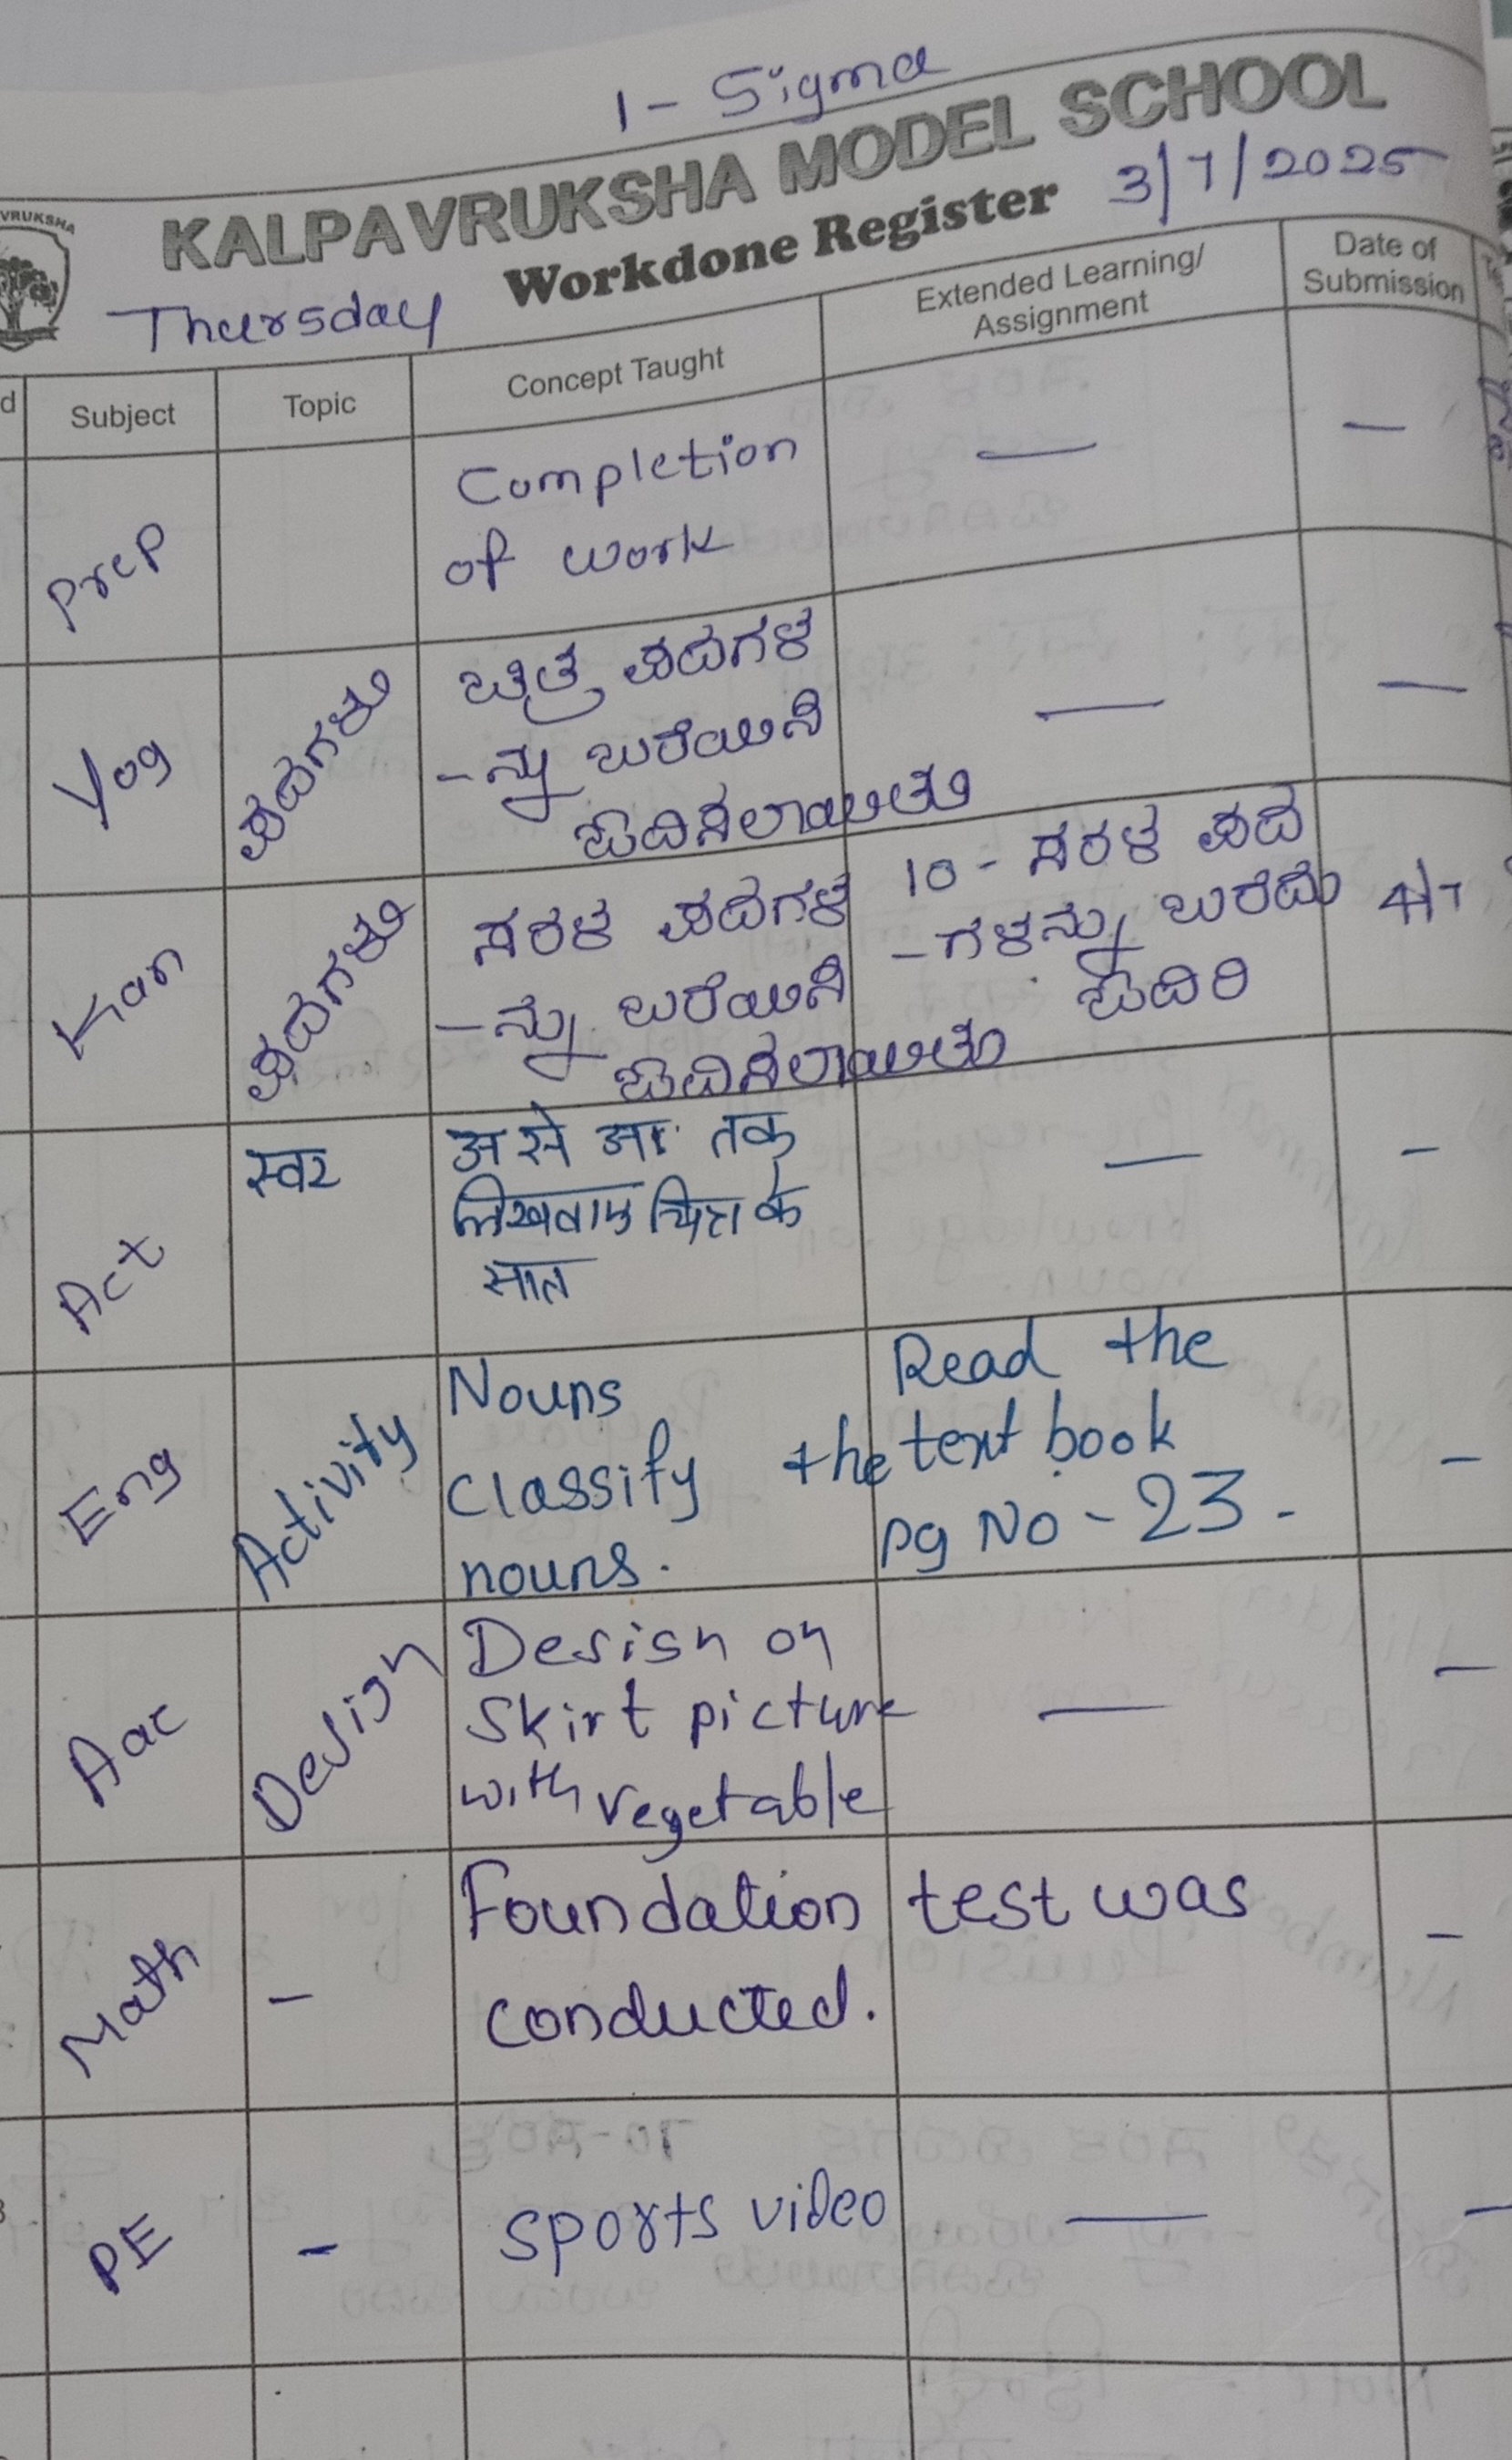 1 - Sigma
KALPAVRUKSHA MODEL SCHOOL
VRUKSHA
Workdone Register 3/7/2025
Thursday
d Subject Topic Concept Taught Extended Learning/ Assignment Date of Submission
Prep
Completion
of work
—
—
Yog
ಪದಗಳು
ಚಿತ್ರ ಪದಗಳ
-ನ್ನು ಬರೆಯಿಸಿ
ಓದಿಸಲಾಯಿತು
—
—
Kan
ಪದಗಳು
ಸರಳ ಪದಗಳ
-ನ್ನು ಬರೆಯಿಸಿ
ಓದಿಸಲಾಯಿತು
10 - ಸರಳ ಪದ
-ಗಳನ್ನು ಬರೆದು
ಓದಿರಿ
4/7
Act
स्वर
अ से तक
लिखवाए चित्र के
सात
—
-
Eng
Activity
Nouns
Classify the
nouns.
Read the
text book
pg No - 23.
-
Aac
Design
Design on
Skirt picture
with vegetable
—
—
Math
-
Foundation test was
conducted.
-
PE
-
sports video
—
—